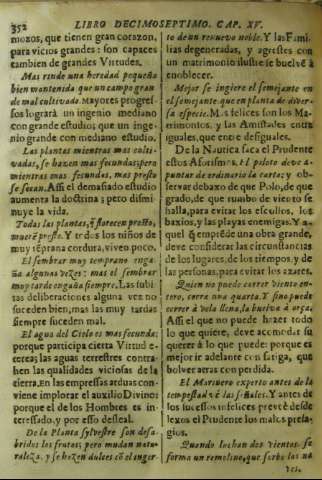 352 LIBRO DECIMOSEPTIMO. CAP. XV.
mozos, que tienen gran corazon,
para vicios grandes: son capaces
tambien de grandes Virtudes.
Mas rinde una heredad pequeña
bien mantenida que un campo gran
de mal cultivado. Mayores progres-
sos logrará un ingenio mediano
con grande estudio; que un inge-
nio grande con mediano estudio.
Las plantas mientras mas culti-
vadas, se hazen mas fecundas; pero
mientras mas fecundas, mas presto
se secan. Assi el demasiado estudio
aumenta la doctrina; pero dismi-
nuye la vida.
Todas las plantas, q̃ florecen presto,
mueren presto. Y todos los niños de
muy tẽprana cordura, viven poco.
El sembrar muy temprano enga-
ña algunas vezes; mas el sembrar
muy tarde engaña siempre. Las subi-
tas deliberaciones alguna vez no
suceden bien, mas las muy tardas
siempre suceden mal.
El agua del Cielo es mas fecunda;
porque participa cierta Virtud e-
terea; las aguas terrestres contra-
hen las qualidades viciosas de la
tierra. En las empressas arduas con-
viene implorar el auxilio Divino
porque el de los Hombres es in-
teressado, y por esso desleal.
De la Planta sylvestre son desa-
bridos los frutos; pero mudan natu-
raleza, y se hazen dulces cõ el inger-
to de un renuevo noble. Y las Fami-
lias degeneradas, y agrestes con
un matrimonio ilustre se buelve à
enoblecer.
Mejor se ingiere el semejante en
el semejante que en planta de diver-
sa especie. Mas felices son los Ma-
trimonios, y las Amistades entre
iguales, que entre desiguales.
De la Nautica saca el Prudente
estos Aforismos. El piloto deve a-
puntar de ordinario la carta; y ob-
servar debaxo de que Polo, de que
grado, de que rumbo de viento se
halla, para evitar los escollos, los
baxios, y las playas enemigas. Y a-
quel q̃ empréde una obra grande,
deve considerar las circunstancias
de los lugares, de los tiempos, y de
las personas, para evitar los azares.
Quien no puede correr viento en-
tero, corra una quarta. Y sino puede
correr à vela llena, la buelva à orça.
Assi el que no puede hazer todo
lo que quiere, deve acomodar su
querer à lo que puede: porque es
mejor ir adelante con fatiga, que
bolver atras con perdida.
El Marinero experto antes de la
tempestad vè las señales. Y antes de
los sucessos infelices prevé desde
lexos el Prudente los malos presa-
gios.
Quando luchan dos vientos, se
forma un remolino, que sorbe las na
ves.